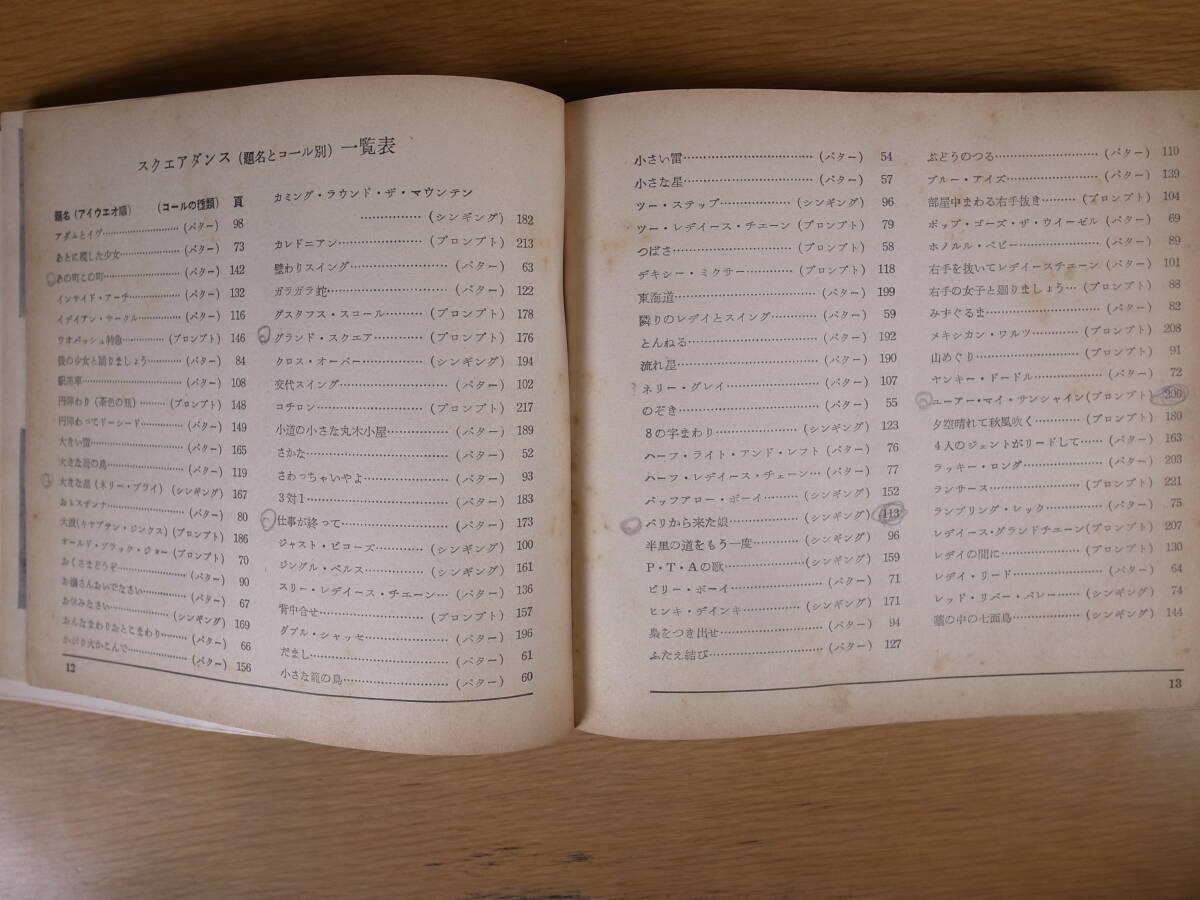 スクエアダンス (題名とコール別) 一覧表
題名 (アイウエオ順) (コールの種類) 頁
アダムとイヴ………………(パター) 98
あとに残した少女…………(パター) 73
あの町この町………………(パター) 142
インサイド・アーチ………(パター) 132
イデイアン・サークル……(パター) 116
ウオバッシュ特急…………(プロンプト) 146
後の少女と踊りましょう…(パター) 84
駅馬車………………………(パター) 108
円陣わり (茶色の瓶)………(プロンプト) 148
円陣わってドーシード……(パター) 149
大きい雷……………………(パター) 165
大きな籠の鳥………………(パター) 119
大きな星 (ネリー・ブライ) (シンギング) 167
おゝスザンナ………………(パター) 80
大波(キャプテン・ジンクス)(プロンプト) 186
オールド・ブラック・ジョー (プロンプト) 70
おくさまどうぞ……………(パター) 90
お嬢さんおいでなさい……(パター) 67
お休みなさい………………(シンギング) 169
おんなまわりおとこまわり…(パター) 66
かがり火かこんで…………(パター) 156
12
カミング・ラウンド・ザ・マウンテン
……………(シンギング) 182
カレドニアン………………(プロンプト) 213
壁わりスイング……………(パター) 63
ガラガラ蛇…………………(パター) 122
グスタフス・スコール……(プロンプト) 178
グランド・スクエア………(プロンプト) 176
クロス・オーバー…………(シンギング) 194
交代スイング………………(パター) 102
コチロン……………………(プロンプト) 217
小道の小さな丸木小屋……(シンギング) 189
さかな………………………(パター) 52
さわっちゃいやよ…………(パター) 93
3対1………………………(パター) 183
仕事が終って………………(パター) 173
ジャスト・ビコーズ………(シンギング) 100
ジングル・ベルス…………(シンギング) 161
スリー・レデイース・チェーン…(パター) 136
背中合せ……………………(プロンプト) 157
ダブル・シャッセ…………(パター) 196
だまし………………………(パター) 61
小さな籠の鳥………………(パター) 60
小さい雷……………………(パター) 54
小さな星……………………(パター) 57
ツー・ステップ……………(シンギング) 96
ツー・レデイース・チェーン (プロンプト) 79
つばさ………………………(プロンプト) 58
デキシー・ミクサー………(プロンプト) 118
東海道………………………(パター) 199
隣りのレデイとスイング…(パター) 59
とんねる……………………(パター) 192
流れ星………………………(パター) 190
ネリー・グレイ……………(パター) 107
のぞき………………………(パター) 55
8の字まわり………………(シンギング) 123
ハーフ・ライト・アンド・レフト (パター) 76
ハーフ・レデイース・チェーン…(パター) 77
バッフアロー・ボーイ……(シンギング) 152
パリから来た娘……………(シンギング) 113
半里の道をもう一度………(シンギング) 96
P・T・Aの歌……………(シンギング) 159
ビリー・ボーイ……………(パター) 71
ヒンキ・デインキ…………(シンギング) 171
梟をつき出せ………………(パター) 94
ふたえ結び…………………(パター) 127
ぶどうのつる………………(パター) 110
ブルー・アイズ……………(パター) 139
部屋中まわる右手抜き……(プロンプト) 104
ポップ・ゴーズ・ザ・ウイーゼル (パター) 69
ホノルル・ベビー…………(パター) 89
右手を抜いてレデイースチェーン (パター) 101
右手の女子と廻りましょう…(プロンプト) 88
みずぐるま…………………(パター) 82
メキシカン・ワルツ………(プロンプト) 208
山めぐり……………………(プロンプト) 91
ヤンキー・ドードル………(パター) 72
ユーアー・マイ・サンシャイン(プロンプト) 206
夕空晴れて秋風吹く………(プロンプト) 180
4人のジェントがリードして……(パター) 163
ラッキー・ロング…………(パター) 203
ランサース…………………(プロンプト) 221
ランブリング・レック……(パター) 75
レデイース・グランドチエーン(プロンプト) 207
レデイの間に………………(プロンプト) 130
レデイ・リード……………(パター) 64
レッド・リバー・バレー…(シンギング) 74
藁の中の七面鳥……………(シンギング) 144
13